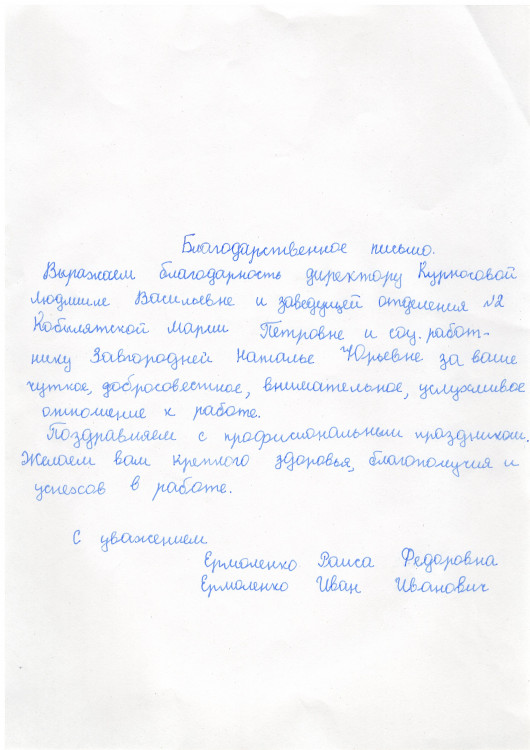 Благодарственное письмо.
Выражаем благодарность директору Курносовой
Людмиле Васильевне и заведущей отделения №2
Кобылятской Марии Петровне и соц. работ-
нику Завгородней Наталье Юрьевне за ваше
чуткое, добросовестное, внимательное, услужливое
отношение к работе.
Поздравляем с професиональным праздником.
Желаем вам крепкого здоровья, благополучия и
успехов в работе.
С уважением
Ермоленко Раиса Федоровна
Ермоленко Иван Иванович